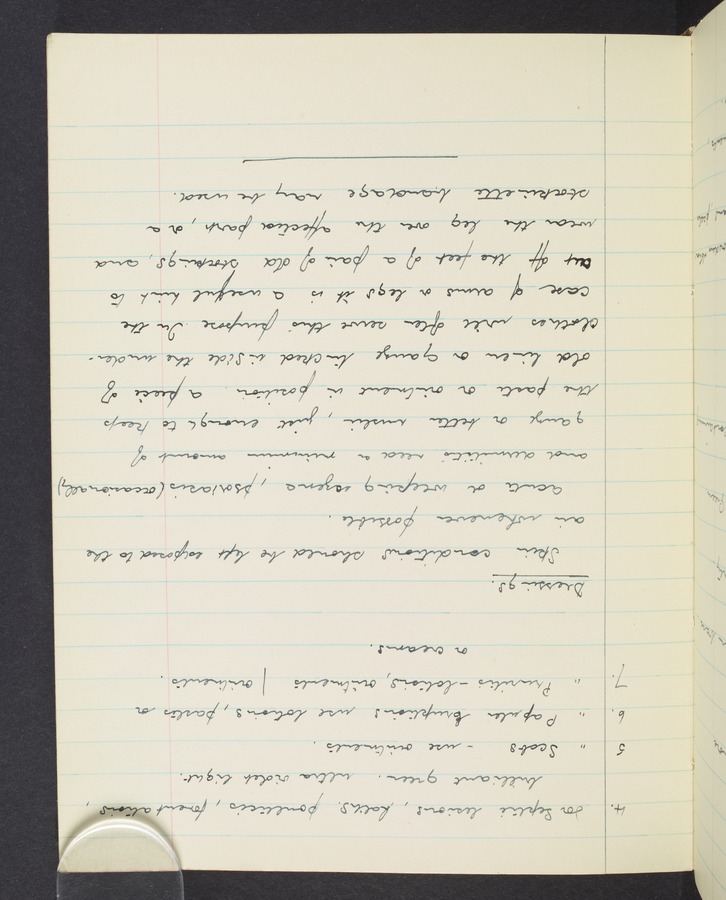 4. For Septic lesions, baths, poultices, fomentations,
brilliant green. ultra violet light.
5 " Scabs - use ointments.
6. " Papular Eruptions use lotions, pastes or
7. " Pruritis - lotions, ointments | ointments.
or creams.
Dressings.
Skin conditions should be left exposed to the
air whenever possible.
Acute or weeping eczema, psoriasis (occasionally)
and dermititis need a minimum amount of
gauze or better muslin, just enough to keep
the paste or ointment in position. A piece of
old linen or gauze tucked inside the under-
clothes will often serve this purpose. In the
case of arms or legs it is a useful hint to
cut off the feet of a pair of old stockings, and
wear the leg over the affected part, or a
stockinette bandage may be used.